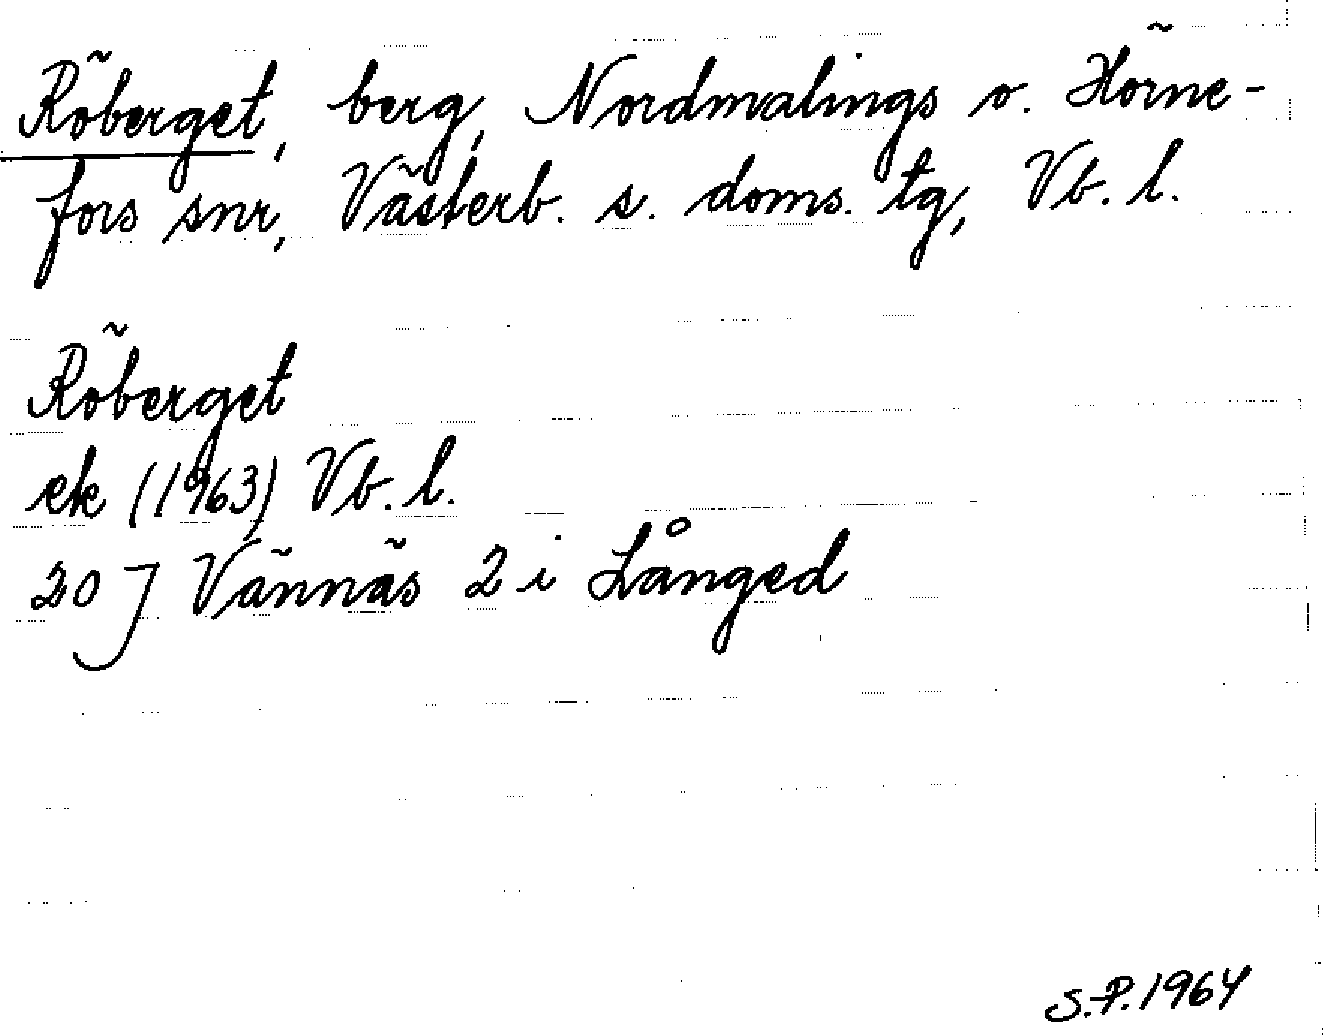 Röberget, berg, Nordmalings o. Hörne-
fors snr, Västerb. s. doms. tg, Vb. l.
Röberget
ek (1963) Vb. l.
20 J Vännäs 2 i Långed
S.-P. 1964